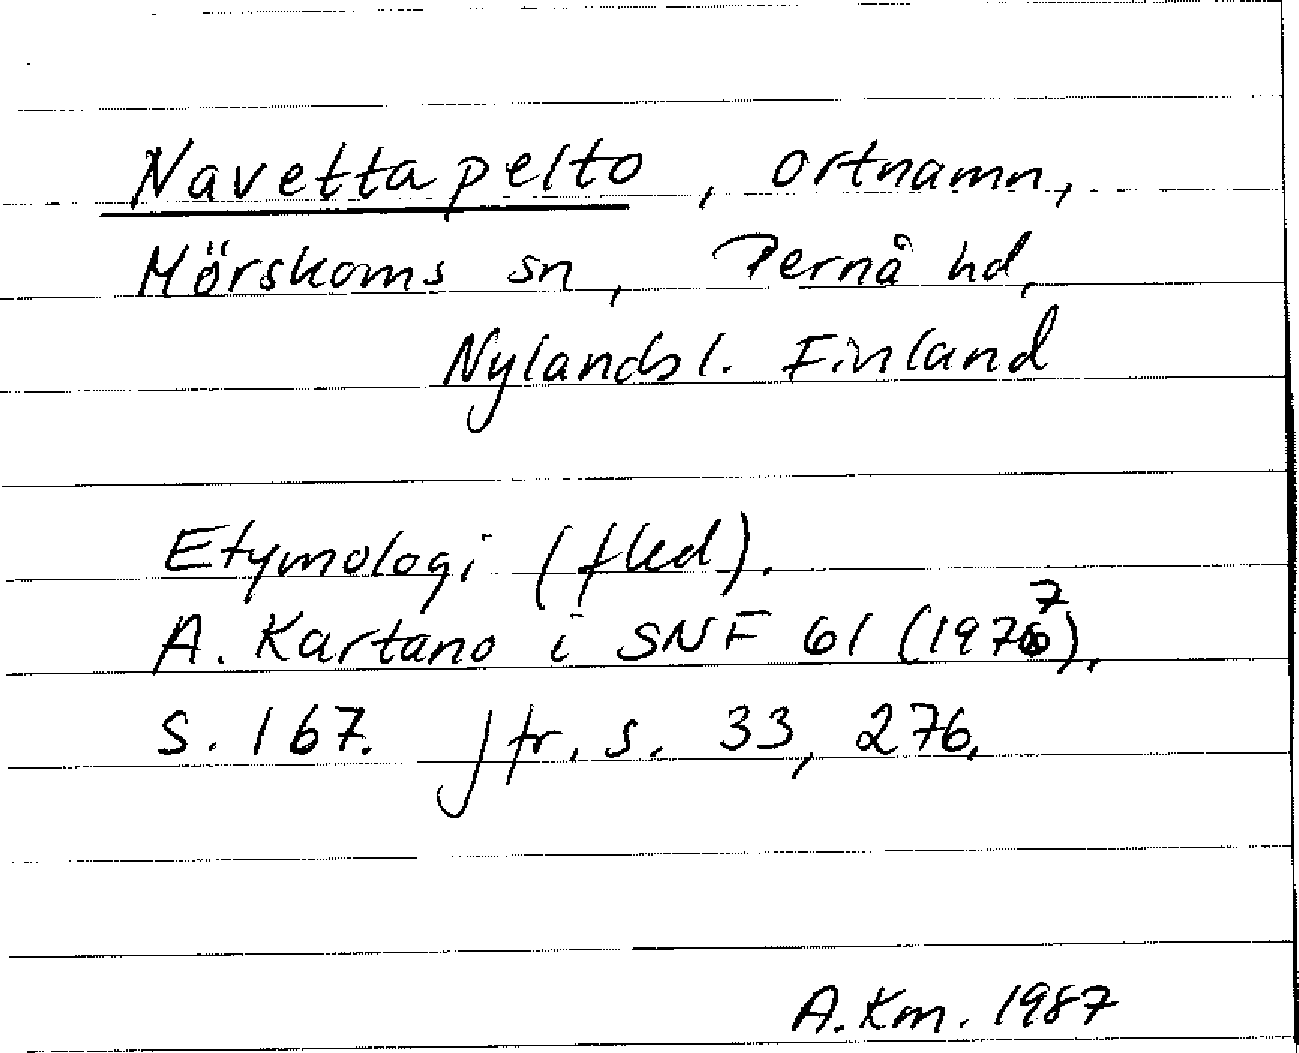 Navettapelto, ortnamn,
Mörskoms sn, Pernå hd,
Nylandsl. Finland
Etymologi (fled).
A. Kartano i SNF 61 (1977),
s. 167. Jfr. s. 33, 276.
A.Km. 1987